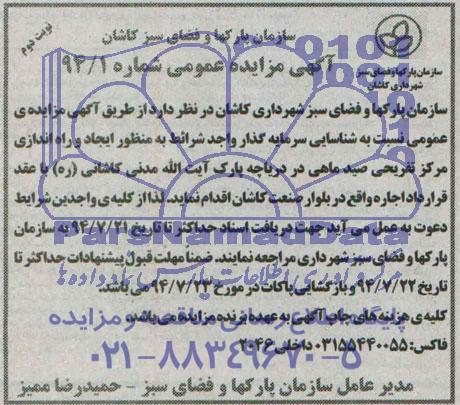 نوبت دوم
سازمان پارکها و فضای سبز کاشان
آگهی مزایده عمومی شماره ۹۴/۱
سازمان پارکها و فضای سبز
شهرداری کاشان
سازمان پارکها و فضای سبز شهرداری کاشان در نظر دارد از طریق آگهی مزایده ی
عمومی نسبت به شناسایی سرمایه گذار واجد شرائط به منظور ایجاد و راه اندازی
مرکز تفریحی صید ماهی در دریاچه پارک آیت الله مدنی کاشانی (ره) با عقد
قرارداد اجاره واقع در بلوار صنعت کاشان اقدام نماید. لذا از کلیه ی واجدین شرایط
دعوت به عمل می آید جهت دریافت اسناد حداکثر تا تاریخ ۹۴/۷/۲۱ به سازمان
پارکها و فضای سبز شهرداری مراجعه نمایند. ضمنا مهلت قبول پیشنهادات حداکثر تا
تاریخ ۹۴/۷/۲۲ و بازگشایی پاکات در مورخ ۹۴/۷/۲۳ می باشد.
کلیه ی هزینه های چاپ آگهی به عهده برنده مزایده می باشد.
فاکس: ۰۳۱۵۵۴۴۰۰۵۵ داخلی ۲۰۴۶
مدیر عامل سازمان پارکها و فضای سبز - حمیدرضا ممیز
ParsNamadData
مرکز فرآوری اطلاعات پارس نماد داده ها
پایگاه اطلاع رسانی مناقصه و مزایده
۰۲۱-۸۸۳۴۹۶۷۰-۵